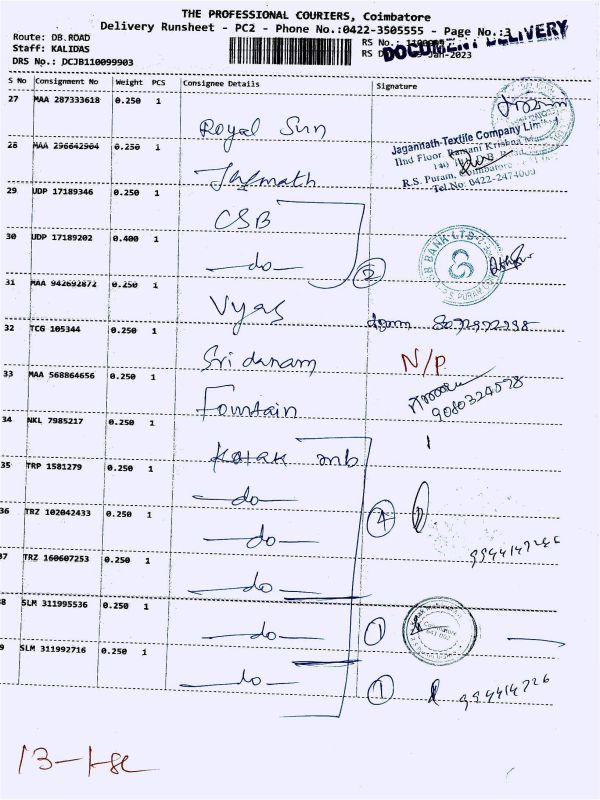 THE PROFESSIONAL COURIERS, Coimbatore
Delivery Runsheet - PC2 - Phone No.:0422-3505555 - Page No.:3
DOCUMENT DELIVERY
Route: DB.ROAD
Staff: KALIDAS
DRS No.: DCJB110099903
RS No.:
RS D Jan-2023
S No Consignment No Weight PCS Consignee Details Signature
27 MAA 287333618 0.250 1 Royal Sun
Jagannath-Textile Company Limited
IInd Floor, Ramani Krishna
140
R.S. Puram, Coimbatore
Tel No: 0422-2474000
28 MAA 296642904 0.250 1 Jagnnath
29 UDP 17189346 0.250 1 CSB
30 UDP 17189202 0.400 1 do 2
B BANK LTD
R.S. PURAM
31 MAA 942692872 0.250 1 Vyas
32 TCG 105344 0.250 1 Sri danam N/P
33 MAA 568864656 0.250 1 Fountain 9080324578
34 NKL 7985217 0.250 1 Kotak mb 1
35 TRP 1581279 0.250 1 do
36 TRZ 102042433 0.250 1 do 4
37 TRZ 160607253 0.250 1 do
38 SLM 311995536 0.250 1 do 1
39 SLM 311992716 0.250 1 do 1
13-1-